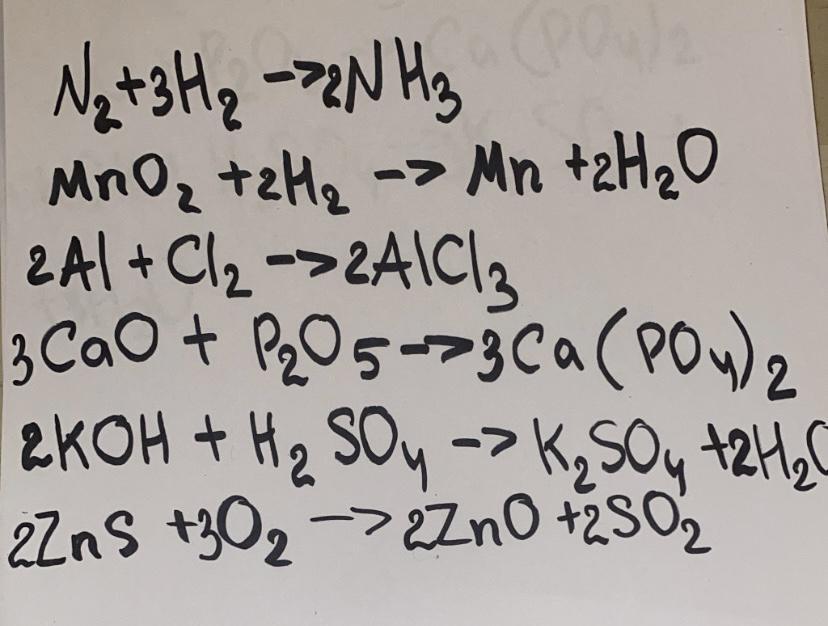 N₂+3H₂ –>2NH₃
MnO₂ +2H₂ –> Mn +2H₂O
2Al + Cl₂ –>2AlCl₃
3CaO + P₂O5–>3Ca(PO₄)₂
2KOH + H₂SO₄ –> K₂SO₄ +2H₂O
2ZnS +3O₂ –>2ZnO +2SO₂